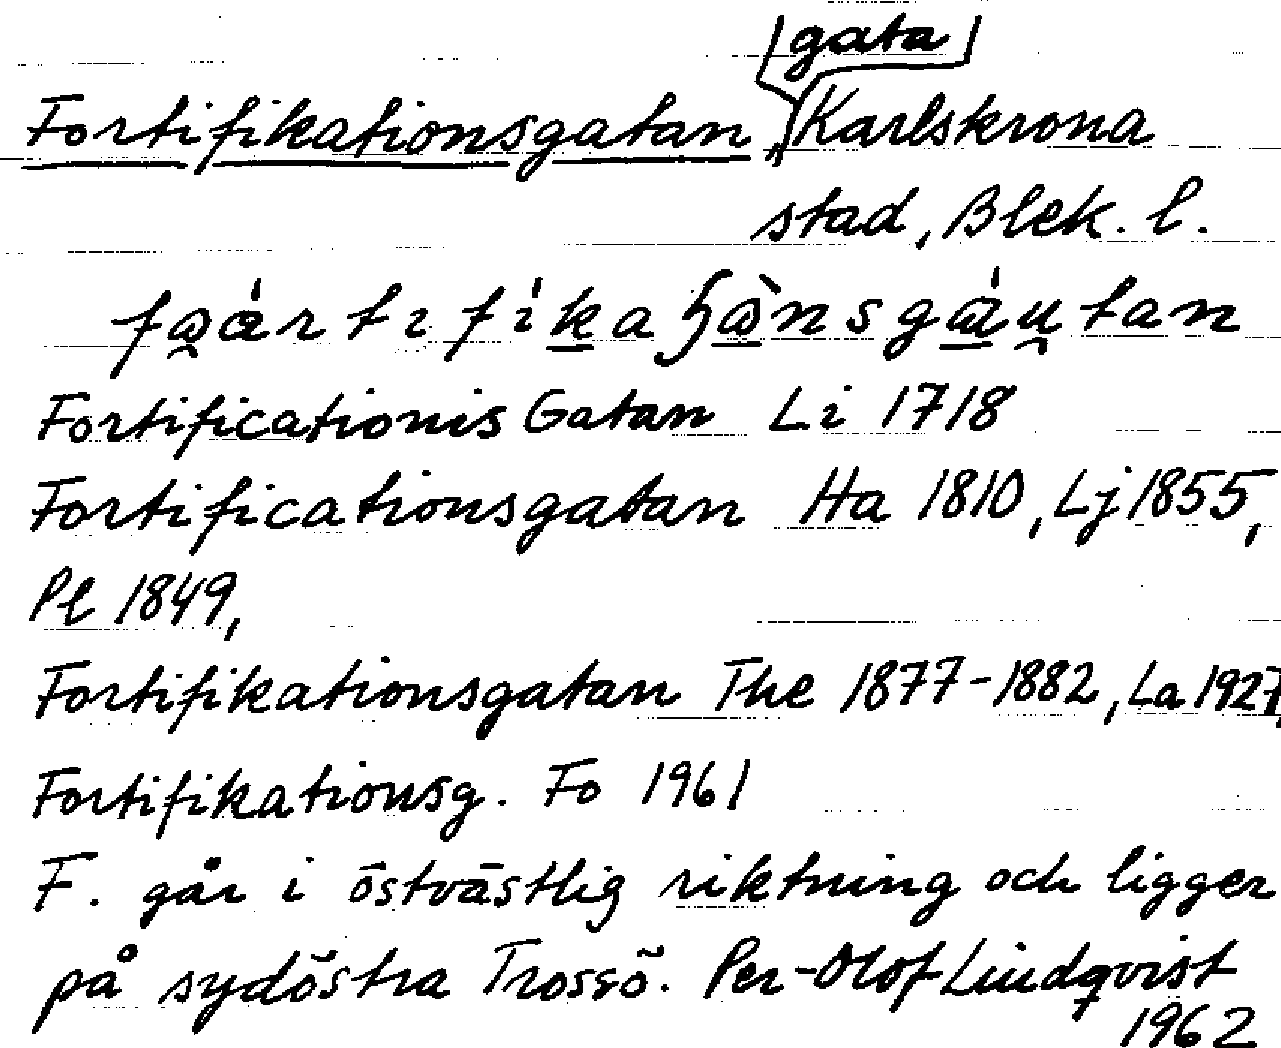 gata
Fortifikationsgatan, Karlskrona
stad, Blek. l.
Fortificationis Gatan Li 1718
Fortificationsgatan Ha 1810, Lj 1855,
Pl 1849,
Fortifikationsgatan The 1877-1882, La 1927,
Fortifikationsg. Fo 1961
F. går i östvästlig riktning och ligger
på sydöstra Trossö. Per-Olof Lindqvist
1962